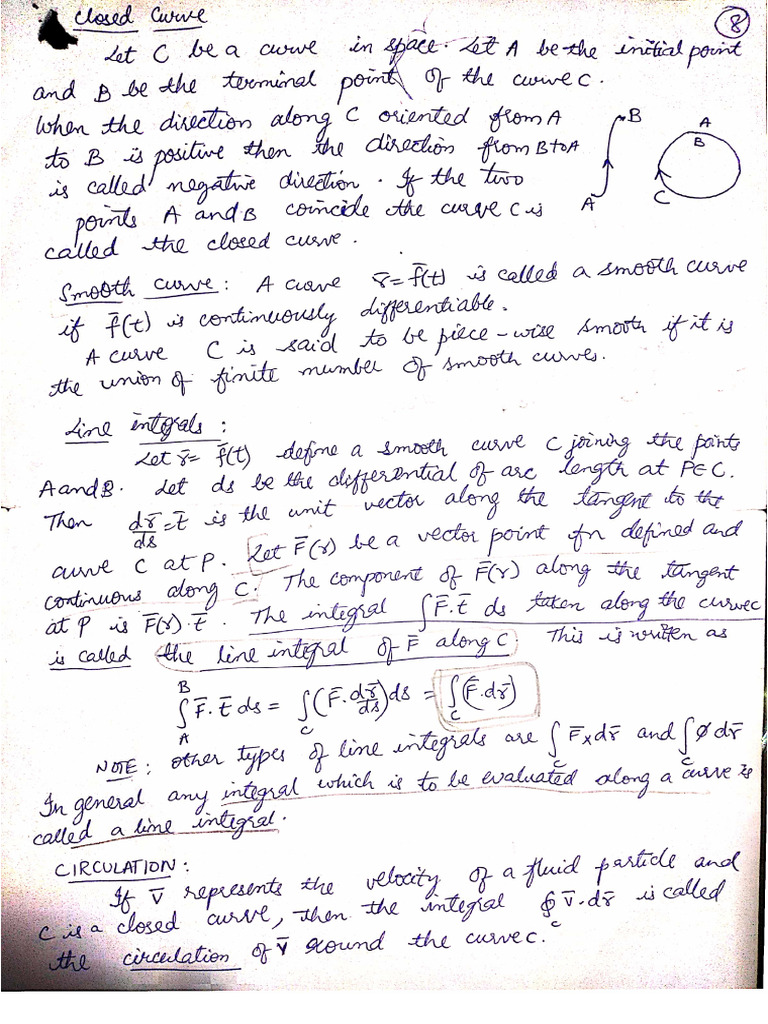 Closed Curve
8
Let C be a curve in space. Let A be the initial point
and B be the terminal point of the curve C.
When the direction along C oriented from A
to B is positive then the direction from B to A
is called negative direction. If the two
points A and B coincide the curve C is
called the closed curve.
B
A
A
B
C
Smooth curve: A curve r̄=f̄(t) is called a smooth curve
if f̄(t) is continuously differentiable.
A curve C is said to be piece-wise smooth if it is
the union of finite number of smooth curves.
Line integrals:
Let r̄= f̄(t) define a smooth curve C joining the points
A and B. Let ds be the differential of arc length at P∈C.
Then dr̄/ds = t̄ is the unit vector along the tangent to the
curve C at P. Let F̄(r) be a vector point fn defined and
continuous along C. The component of F̄(r) along the tangent
at P is F̄(r)·t̄. The integral ∫F̄·t̄ ds taken along the curve C
is called the line integral of F̄ along C. This is written as
∫_A^B F̄·t̄ ds = ∫_C (F̄·dr̄/ds) ds = ∫_C (F̄·dr̄)
NOTE: other types of line integrals are ∫_C F̄×dr̄ and ∫_C ∅dr̄
In general any integral which is to be evaluated along a curve is
called a line integral.
CIRCULATION:
If v̄ represents the velocity of a fluid particle and
C is a closed curve, then the integral ∮_C v̄·dr̄ is called
the circulation of v̄ round the curve C.